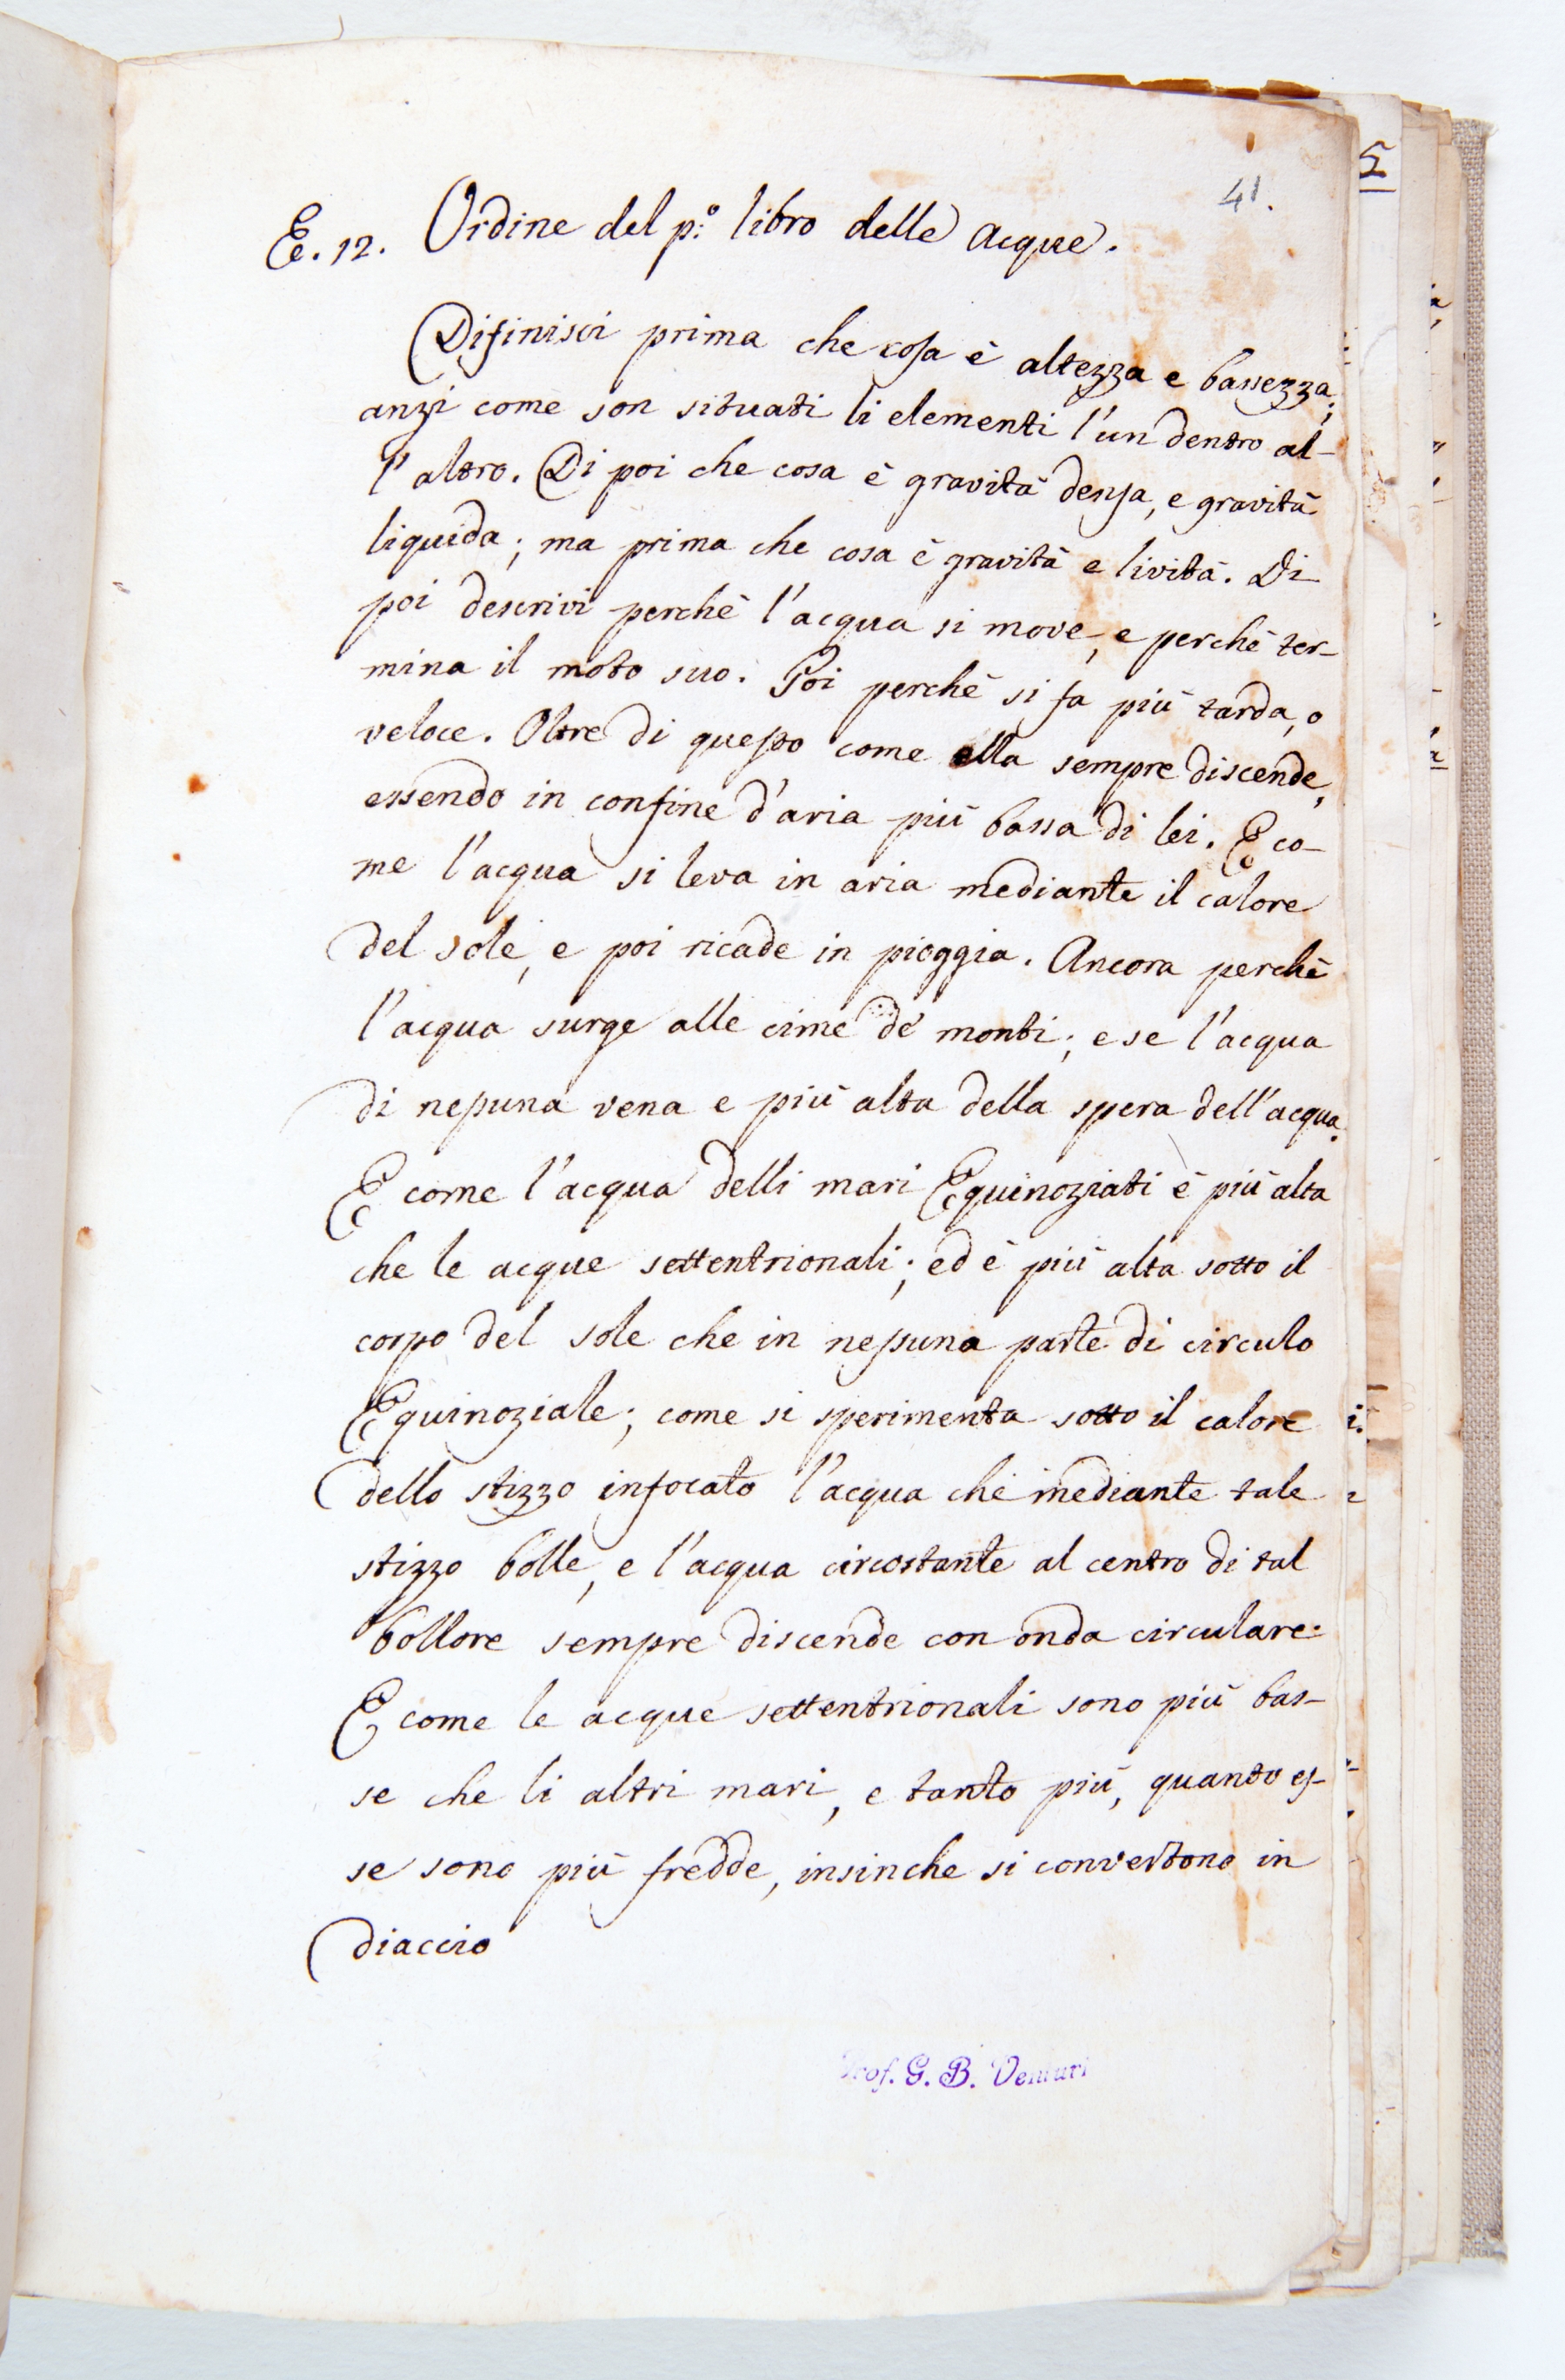 41.
E. 12. Ordine del p:º libro delle acque.
Difinisci prima che cosa è altezza e bassezza;
anzi come son situati li elementi l'un dentro al-
l'altro. Di poi che cosa è gravità densa, e gravità
liquida; ma prima che cosa è gravità e lività. Di
poi descrivi perchè l'acqua si move, e perchè ter-
mina il moto suo. Poi perchè si fa più tarda, o
veloce. Oltre di questo come ella sempre discende,
essendo in confine d'aria più bassa di lei. E co-
me l'acqua si leva in aria mediante il calore
del sole, e poi ricade in pioggia. Ancora perchè
l'acqua surge alle cime de' monti; e se l'acqua
di nessuna vena e più alta della spera dell'acqua.
E come l'acqua delli mari Equinoziati è più alta
che le acque settentrionali; ed è più alta sotto il
corpo del sole che in nessuna parte di circulo
Equinoziale; come si sperimenta sotto il calore
dello stizzo infocato l'acqua che mediante tale
stizzo bolle, e l'acqua circostante al centro di tal
bollore sempre discende con onda circulare.
E come le acque settentrionali sono più bas-
se che li altri mari, e tanto più, quanto es-
se sono più fredde, insinche si convertono in
diaccio
Prof. G. B. Venturi